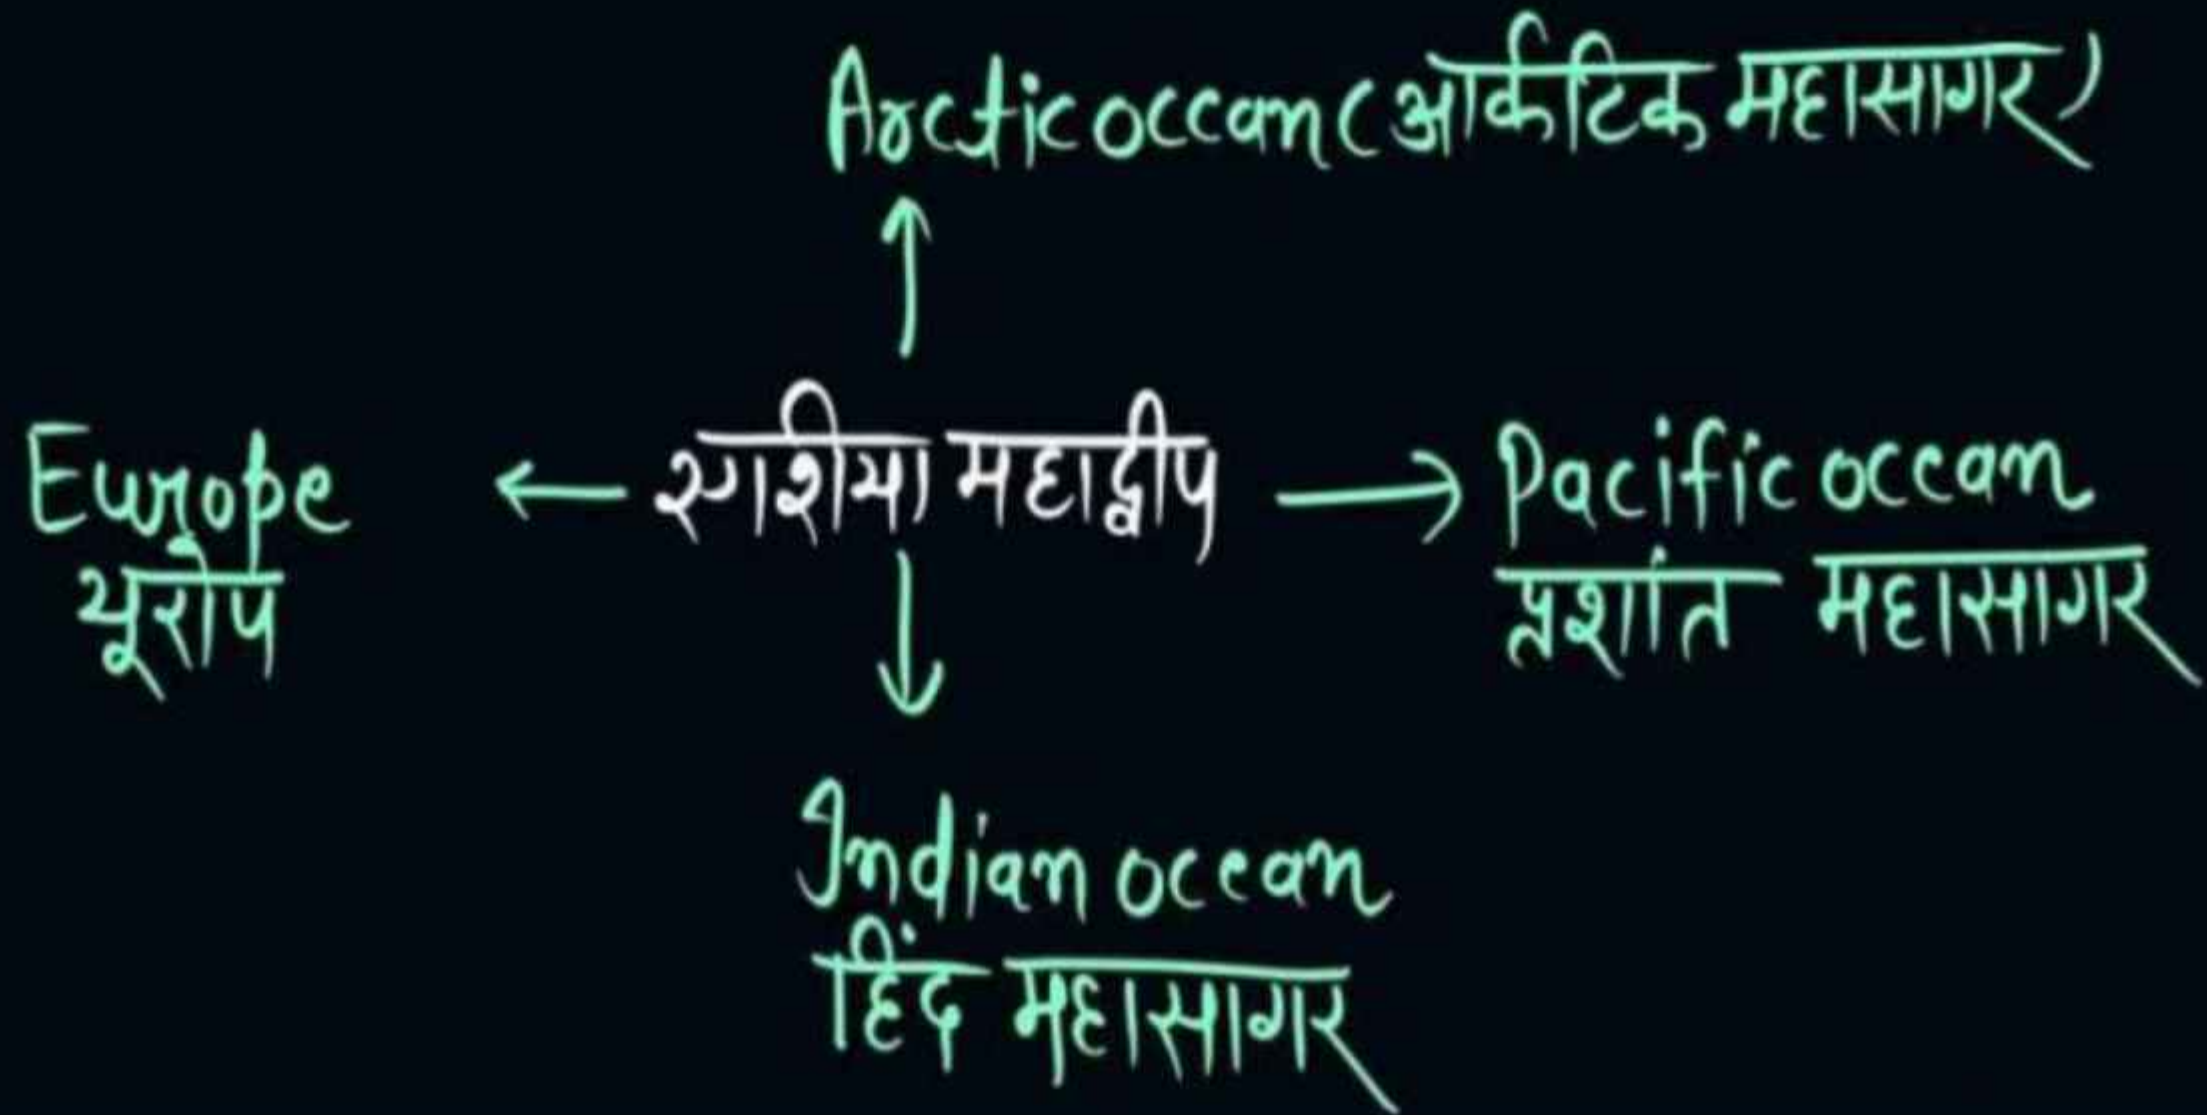 Arctic occan (आर्कटिक महासागर)
Europe
यूरोप
एशीया महाद्वीप
Pacific ocean
प्रशांत महासागर
Indian ocean
हिंद महासागर